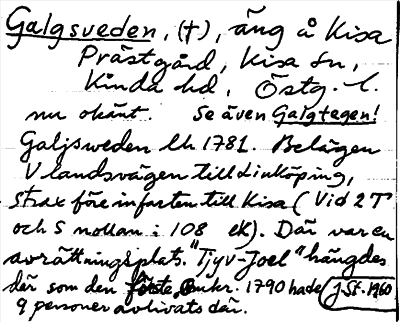 Galgsveden, (†), äng å Kisa
Prästgård, Kisa sn,
Kinda hd, Östg. l.
nu okänt. Se även Galgtegen!
Galjsweden lh 1781. Belägen
V landsvägen till Linköping,
strax före infarten till Kisa (Vid 2 T
och S nollan i 108 eK). Där var en
avrättningsplats. "Tjyv-Joel" hängdes
där som den första omkr. 1790 hade
9 personer avlivats där.
J St. 1960